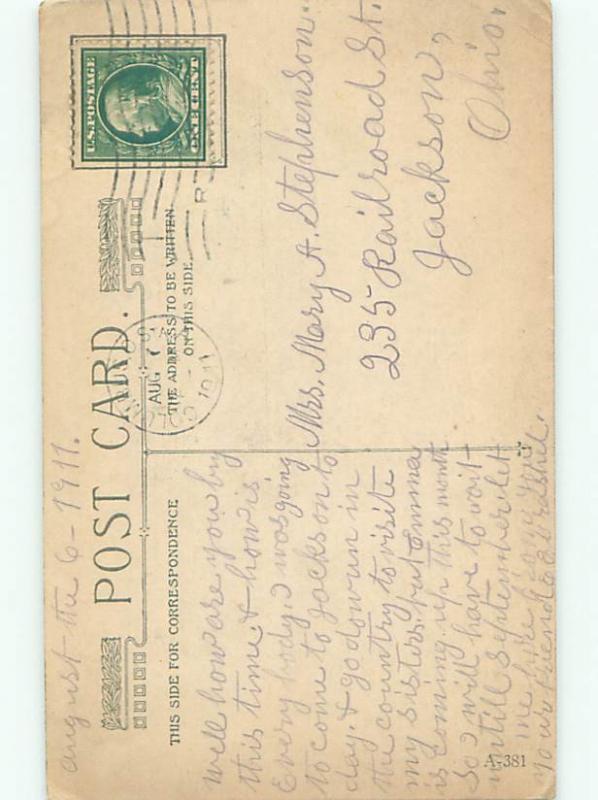 August the 6 - 1911.
POST CARD.
THIS SIDE FOR CORRESPONDENCE
THE ADDRESS TO BE WRITTEN
ON THIS SIDE
U.S. POSTAGE
ONE CENT
AUG 7
1911
Well how are you by
this time. & how is
Every body. I was going
to come to Jackson to
day. & go down in
the country to visite
my sisters. but emma
is coming up this month
So I will have to wait
untill September. let
me here
your friend
Mrs. Mary A. Stephenson.
235 Railroad St.
Jackson,
Ohio.
A-381